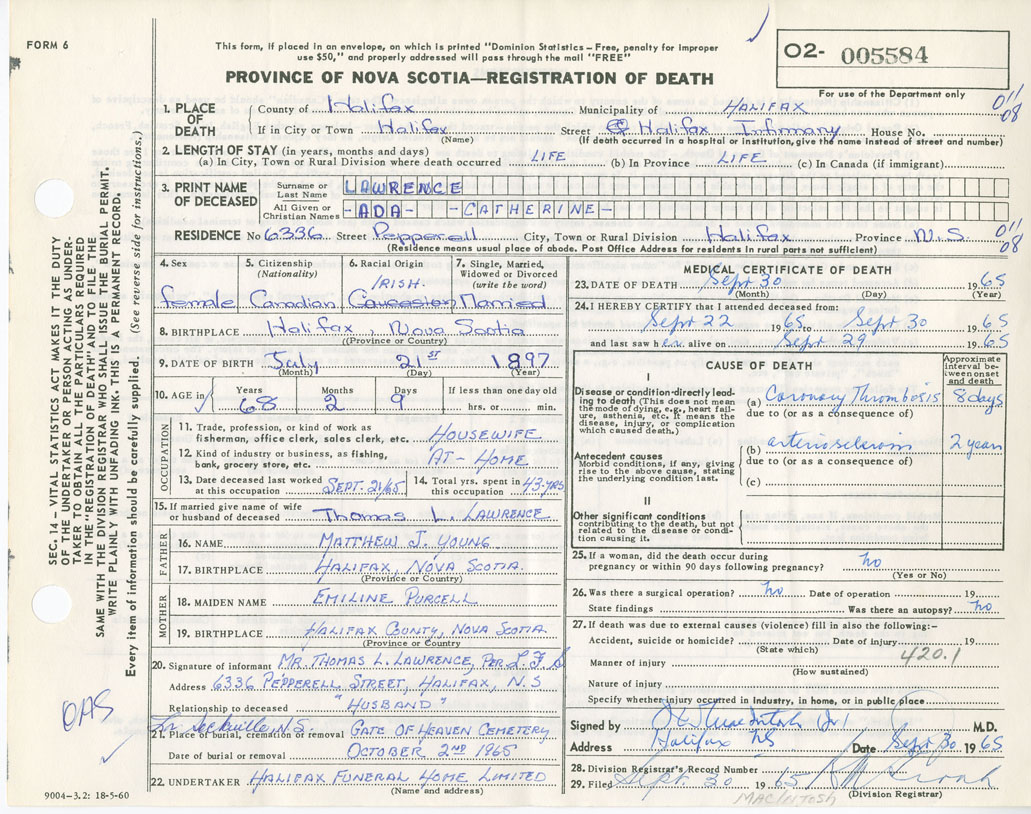 FORM 6
This form, if placed in an envelope, on which is printed "Dominion Statistics – Free, penalty for improper
use $50," and properly addressed will pass through the mail "FREE"
PROVINCE OF NOVA SCOTIA—REGISTRATION OF DEATH
O2- 005584
For use of the Department only
011
08
1. PLACE OF DEATH
County of Halifax Municipality of HALIFAX
If in City or Town Halifax Street Halifax Infirmary House No.
(Name) (If death occurred in a hospital or institution, give the name instead of street and number)
2. LENGTH OF STAY (in years, months and days)
(a) In City, Town or Rural Division where death occurred LIFE (b) In Province LIFE (c) In Canada (if immigrant)
3. PRINT NAME OF DECEASED
Surname or Last Name LAWRENCE
All Given or Christian Names -ADA- -CATHERINE-
RESIDENCE No 6336 Street Pepperell City, Town or Rural Division Halifax Province N.S. 011
08
(Residence means usual place of abode. Post Office Address for residents in rural parts not sufficient)
4. Sex female
5. Citizenship (Nationality) Canadian
6. Racial Origin IRISH. Caucasian
7. Single, Married, Widowed or Divorced (write the word) Married
8. BIRTHPLACE Halifax, Nova Scotia
(Province or Country)
9. DATE OF BIRTH July 21st 1897
(Month) (Day) (Year)
10. AGE in Years 68 Months 2 Days 9 If less than one day old hrs. or min.
OCCUPATION
11. Trade, profession or kind of work as fisherman, office clerk, sales clerk, etc. HOUSEWIFE
12. Kind of industry or business, as fishing, bank, grocery store, etc. AT-HOME
13. Date deceased last worked at this occupation SEPT. 21/65
14. Total yrs. spent in this occupation 43-YRS
15. If married give name of wife or husband of deceased Thomas L. LAWRENCE
FATHER
16. NAME MATTHEW J. YOUNG
17. BIRTHPLACE HALIFAX, NOVA SCOTIA.
(Province or Country)
MOTHER
18. MAIDEN NAME EMILINE PURCELL
19. BIRTHPLACE HALIFAX COUNTY, NOVA SCOTIA
(Province or Country)
20. Signature of informant MR. THOMAS L. LAWRENCE, PER
Address 6336 PEPPERELL, STREET, HALIFAX, N.S
Relationship to deceased "HUSBAND"
Sackville, N.S.
21. Place of burial, cremation or removal GATE OF HEAVEN CEMETERY
Date of burial or removal OCTOBER 2ND 1965
22. UNDERTAKER HALIFAX FUNERAL HOME LIMITED
(Name and address)
MEDICAL CERTIFICATE OF DEATH
23. DATE OF DEATH Sept 30 1965
(Month) (Day) (Year)
24. I HEREBY CERTIFY that I attended deceased from:
Sept 22 1965 to Sept 30 1965
and last saw her alive on Sept 29 1965
CAUSE OF DEATH
Approximate interval between onset and death
I
Disease or condition directly leading to death (This does not mean the mode of dying, e.g., heart failure, asthenia, etc. It means the disease, injury, or complication which caused death.)
(a) Coronary Thrombosis 8 days
due to (or as a consequence of)
Antecedent causes
Morbid conditions, if any, giving rise to the above cause, stating the underlying condition last.
(b) arteriosclerosis 2 years
due to (or as a consequence of)
(c)
II
Other significant conditions
contributing to the death, but not related to the disease or condition causing it.
25. If a woman, did the death occur during pregnancy or within 90 days following pregnancy? no
(Yes or No)
26. Was there a surgical operation? no Date of operation 19
State findings Was there an autopsy? no
27. If death was due to external causes (violence) fill in also the following:-
Accident, suicide or homicide? Date of injury 19
(State which) 420.1
Manner of injury
(How sustained)
Nature of injury
Specify whether injury occurred in industry, in home, or in public place
Signed by M.D.
Address Halifax NS Date Sept 30 1965
28. Division Registrar's Record Number
29. Filed Sept 30 1965
MACINTOSH (Division Registrar)
SEC. 14 – VITAL STATISTICS ACT MAKES IT THE DUTY
OF THE UNDERTAKER OR PERSON ACTING AS UNDER-
TAKER TO OBTAIN ALL THE PARTICULARS REQUIRED
IN THE "REGISTRATION OF DEATH" AND TO FILE THE
SAME WITH THE DIVISION REGISTRAR WHO SHALL ISSUE THE BURIAL PERMIT.
WRITE PLAINLY WITH UNFADING INK. THIS IS A PERMANENT RECORD.
Every item of information should be carefully supplied. (See reverse side for instructions.)
OAS
9004–3.2: 18-5-60